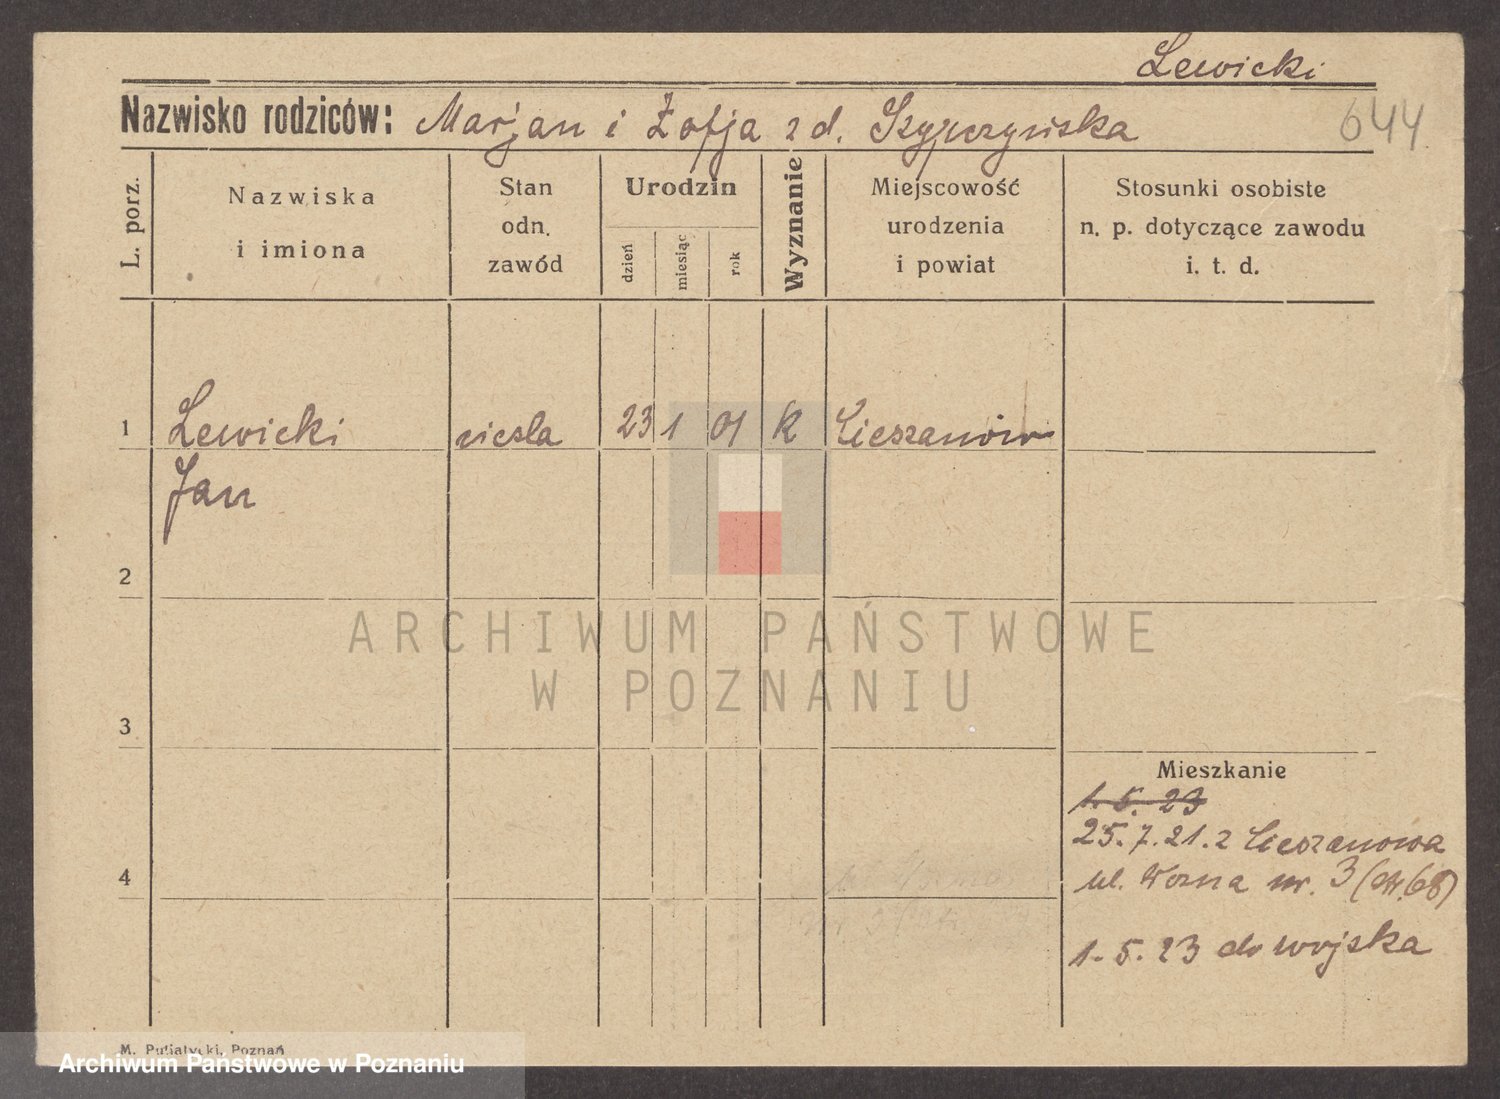 Lewicki
Nazwisko rodziców: Marjan i Zofja z d. Szypczyńska
644
L. porz.
Nazwiska
i imiona
Stan
odn.
zawód
Urodzin
dzień
miesiąc
rok
Wyznanie
Miejscowość
urodzenia
i powiat
Stosunki osobiste
n. p. dotyczące zawodu
i. t. d.
1 Lewicki ciesla 23 1 01 K Cieszanów
Jan
2
ARCHIWUM PAŃSTWOWE
W POZNANIU
3
Mieszkanie
1. 5. 23
25. 7. 21. z Cieszanowa
4
ul. Wozna nr. 3 (68)
1. 5. 23 do wojska
M. Putiatycki, Poznań
Archiwum Państwowe w Poznaniu